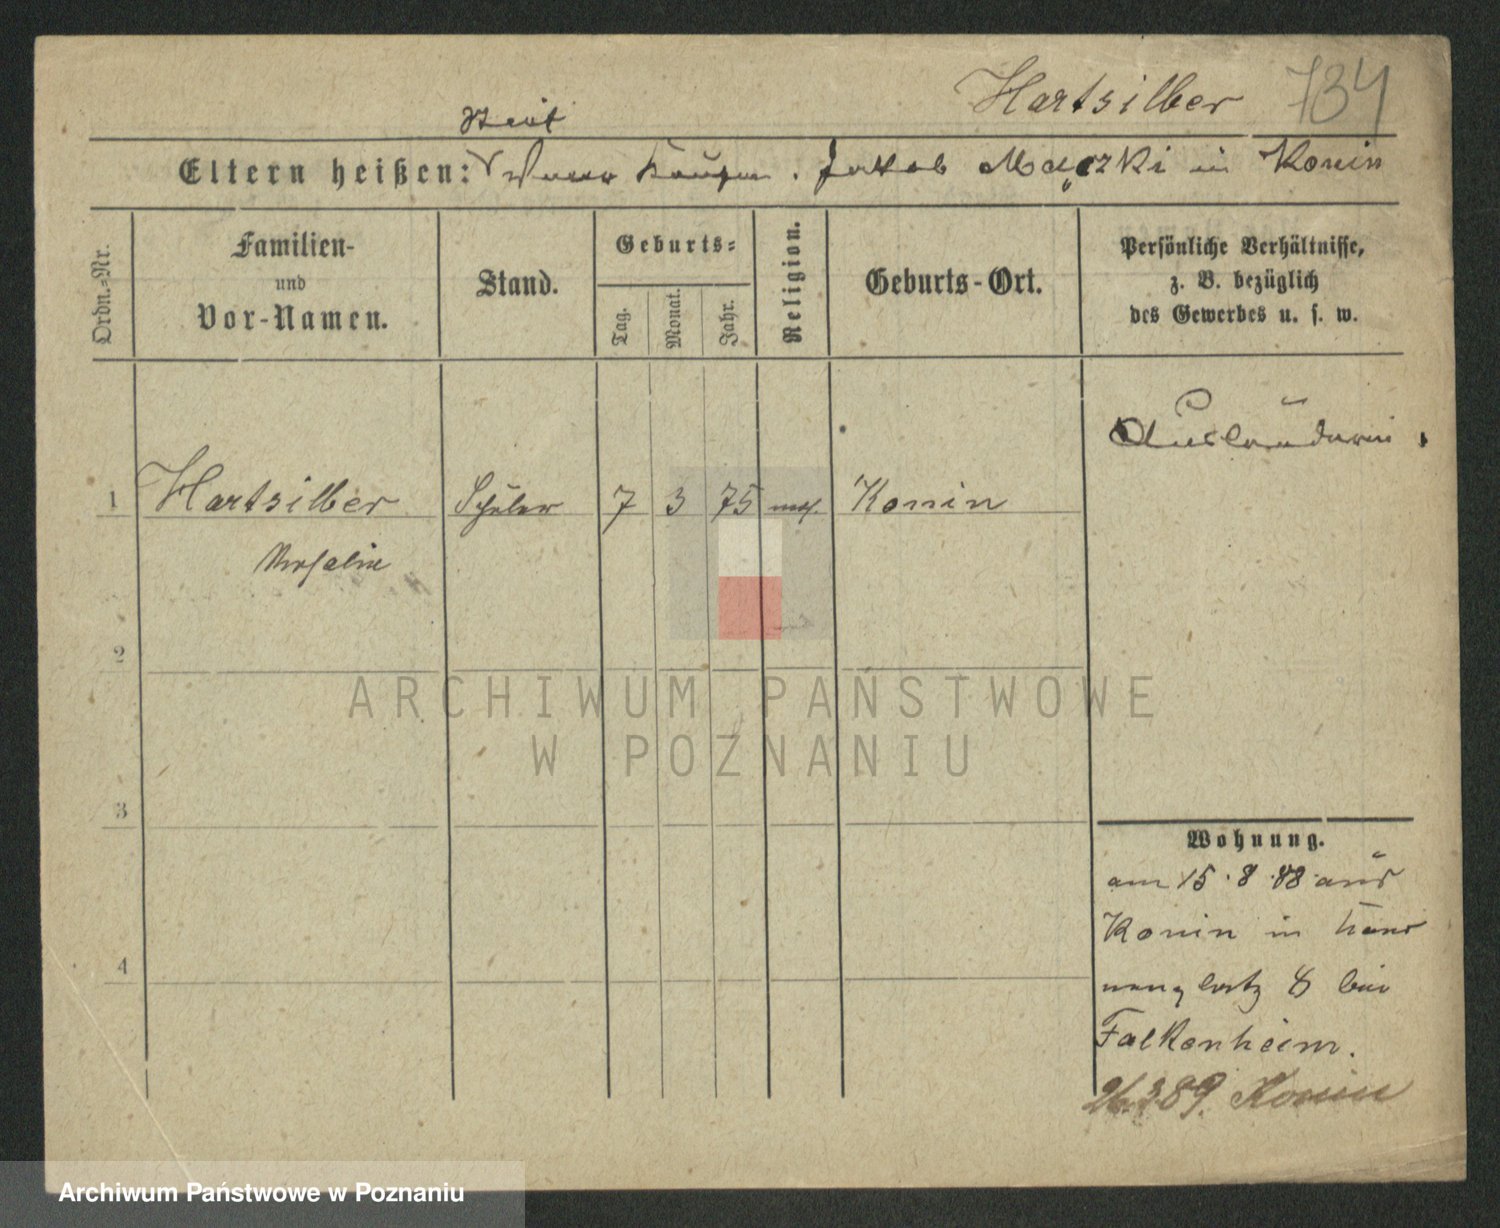 Hartsilber 734
Eltern heißen: Jakob Mączki in Konin
Ordn.-Nr.
Familien-
und
Vor-Namen.
Stand.
Geburts-
Tag.
Monat.
Jahr.
Religion.
Geburts-Ort.
Persönliche Verhältnisse,
z. B. bezüglich
des Gewerbes u. s. w.
Ausländerin.
1 Hartsilber Schüler 7 3 75 mos. Konin
Rosalie
2
3
4
ARCHIWUM PAŃSTWOWE
W POZNANIU
Wohnung.
am 15.8.88 aus
Konin in
8 bei
Falkenheim.
26.3.89. Konin
Archiwum Państwowe w Poznaniu